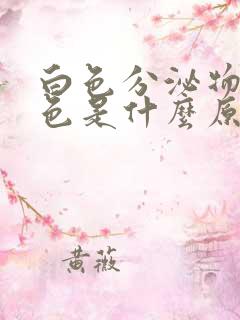 白色分泌物
色是什麼原
黄薇